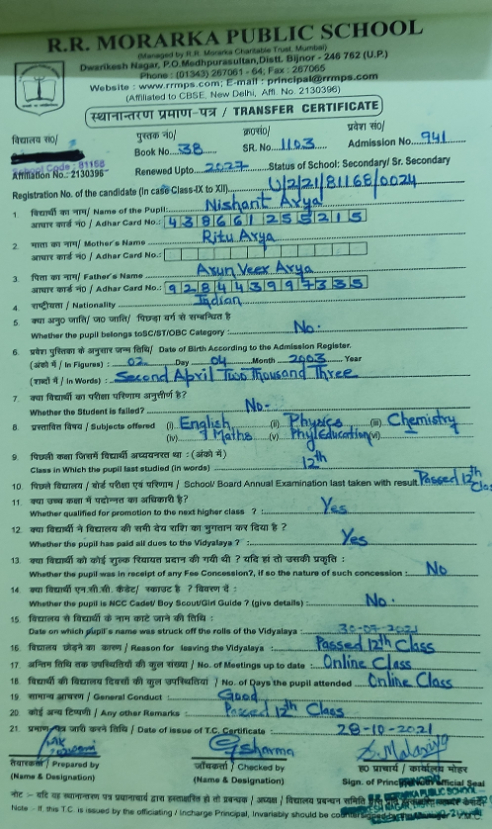 R.R. MORARKA PUBLIC SCHOOL
(Managed by R.R. Morarka Charitable Trust, Mumbai)
Dwarikesh Nagar, P.O.Medhpurasultan,Distt. Bijnor - 246 762 (U.P.)
Phone : (01343) 267061 - 64; Fax : 267065
Website : www.rrmps.com; E-mail : principal@rrmps.com
(Affiliated to CBSE, New Delhi, Affl. No. 2130396)
स्थानान्तरण प्रमाण-पत्र / TRANSFER CERTIFICATE
विद्यालय सं०/ पुस्तक नं०/ क्र०सं०/ प्रवेश सं०/
Book No. 38 SR. No. 1103 Admission No. 941
School Code : 81168
Affiliation No. 2130396 Renewed Upto 2027 Status of School: Secondary/ Sr. Secondary
Registration No. of the candidate (In case Class-IX to XII) U/2/21/81168/0024
1. विद्यार्थी का नाम/ Name of the Pupil: Nishant Arya
आधार कार्ड नं० / Adhar Card No.: 438661255215
2. माता का नाम/ Mother's Name Ritu Arya
आधार कार्ड नं० / Adhar Card No.:
3. पिता का नाम/ Father's Name Arun Veer Arya
आधार कार्ड नं० / Adhar Card No.: 928443997335
4. राष्ट्रीयता / Nationality Indian
5. क्या अनु० जाति/ ज० जाति/ पिछड़ा वर्ग से सम्बन्धित है
Whether the pupil belongs toSC/ST/OBC Category : No.
6. प्रवेश पुस्तिका के अनुसार जन्म तिथि/ Date of Birth According to the Admission Register.
(अंकों में / In Figures) : 02 Day 04 Month 2003 Year
(शब्दों में / In Words) : Second April Two Thousand Three
7. क्या विद्यार्थी का परीक्षा परिणाम अनुत्तीर्ण है?
Whether the Student is failed? No-
8. प्रस्तावित विषय / Subjects offered (i) English (ii) Physics (iii) Chemistry
(iv) Maths (v) Phy/Education (vi)
9. पिछली कक्षा जिसमें विद्यार्थी अध्ययनरत था : (अंकों में)
Class in Which the pupil last studied (in words) 12th
10. पिछले विद्यालय / बोर्ड परीक्षा एवं परिणाम / School/ Board Annual Examination last taken with result. Passed 12th Class
11. क्या उच्च कक्षा में पदोन्नत का अधिकारी है?
Whether qualified for promotion to the next higher class ? : Yes
12. क्या विद्यार्थी ने विद्यालय की सभी देय राशि का भुगतान कर दिया है ?
Whether the pupil has paid all dues to the Vidyalaya ? : Yes
13. क्या विद्यार्थी को कोई शुल्क रियायत प्रदान की गयी थी ? यदि हां तो उसकी प्रकृति :
Whether the pupil was in receipt of any Fee Concession?, if so the nature of such concession : No
14. क्या विद्यार्थी एन.सी.सी. कैडेट/ स्काउट है ? विवरण दें :
Whether the pupil is NCC Cadet/ Boy Scout/Girl Guide ? (give details) : No.
15. विद्यालय से विद्यार्थी के नाम काटे जाने की तिथि :
Date on which pupil's name was struck off the rolls of the Vidyalaya : 30-07-2021
16. विद्यालय छोड़ने का कारण / Reason for leaving the Vidyalaya : Passed 12th Class
17. अन्तिम तिथि तक उपस्थितियों की कुल संख्या / No. of Meetings up to date : Online Class
18. विद्यार्थी की विद्यालय दिवसों की कुल उपस्थितियां / No. of Days the pupil attended Online Class
19. सामान्य आचरण / General Conduct : Good
20. कोई अन्य टिप्पणी / Any other Remarks : Passed 12th Class
21. प्रमाण पत्र जारी करने तिथि / Date of issue of T.C. Certificate : 28-10-2021
तैयारकर्ता / Prepared by जाँचकर्ता / Checked by ह० प्राचार्य / कार्यालय मोहर
(Name & Designation) (Name & Designation) Sign. of Principal Official Seal
नोट :- यदि यह स्थानान्तरण पत्र प्रधानाचार्य द्वारा हस्ताक्षरित हो तो प्रबन्धक / अध्यक्ष / विद्यालय प्रबन्धन समिति
Note - If this T.C. is issued by the officiating / Incharge Principal, Invariably should be countersigned by